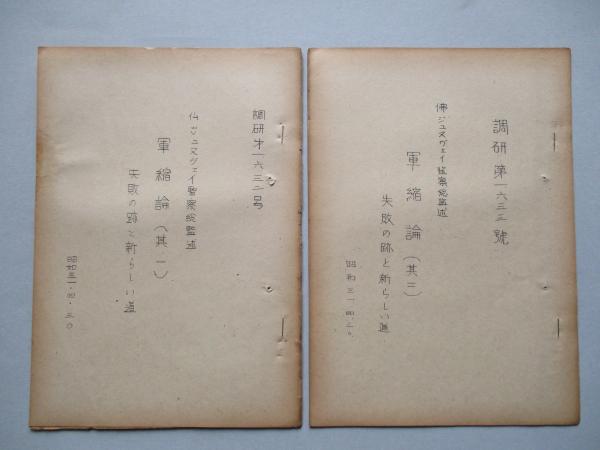 調研第一六三三號
佛ジュスヴェイ警察総監述
軍縮論(其三)
失敗の跡と新らしい道
昭和三一.四.三〇
調研才一六三二号
仏ジュスヴェイ警察総監述
軍縮論(其一)
失敗の跡と新らしい道
昭和三一・四・三〇